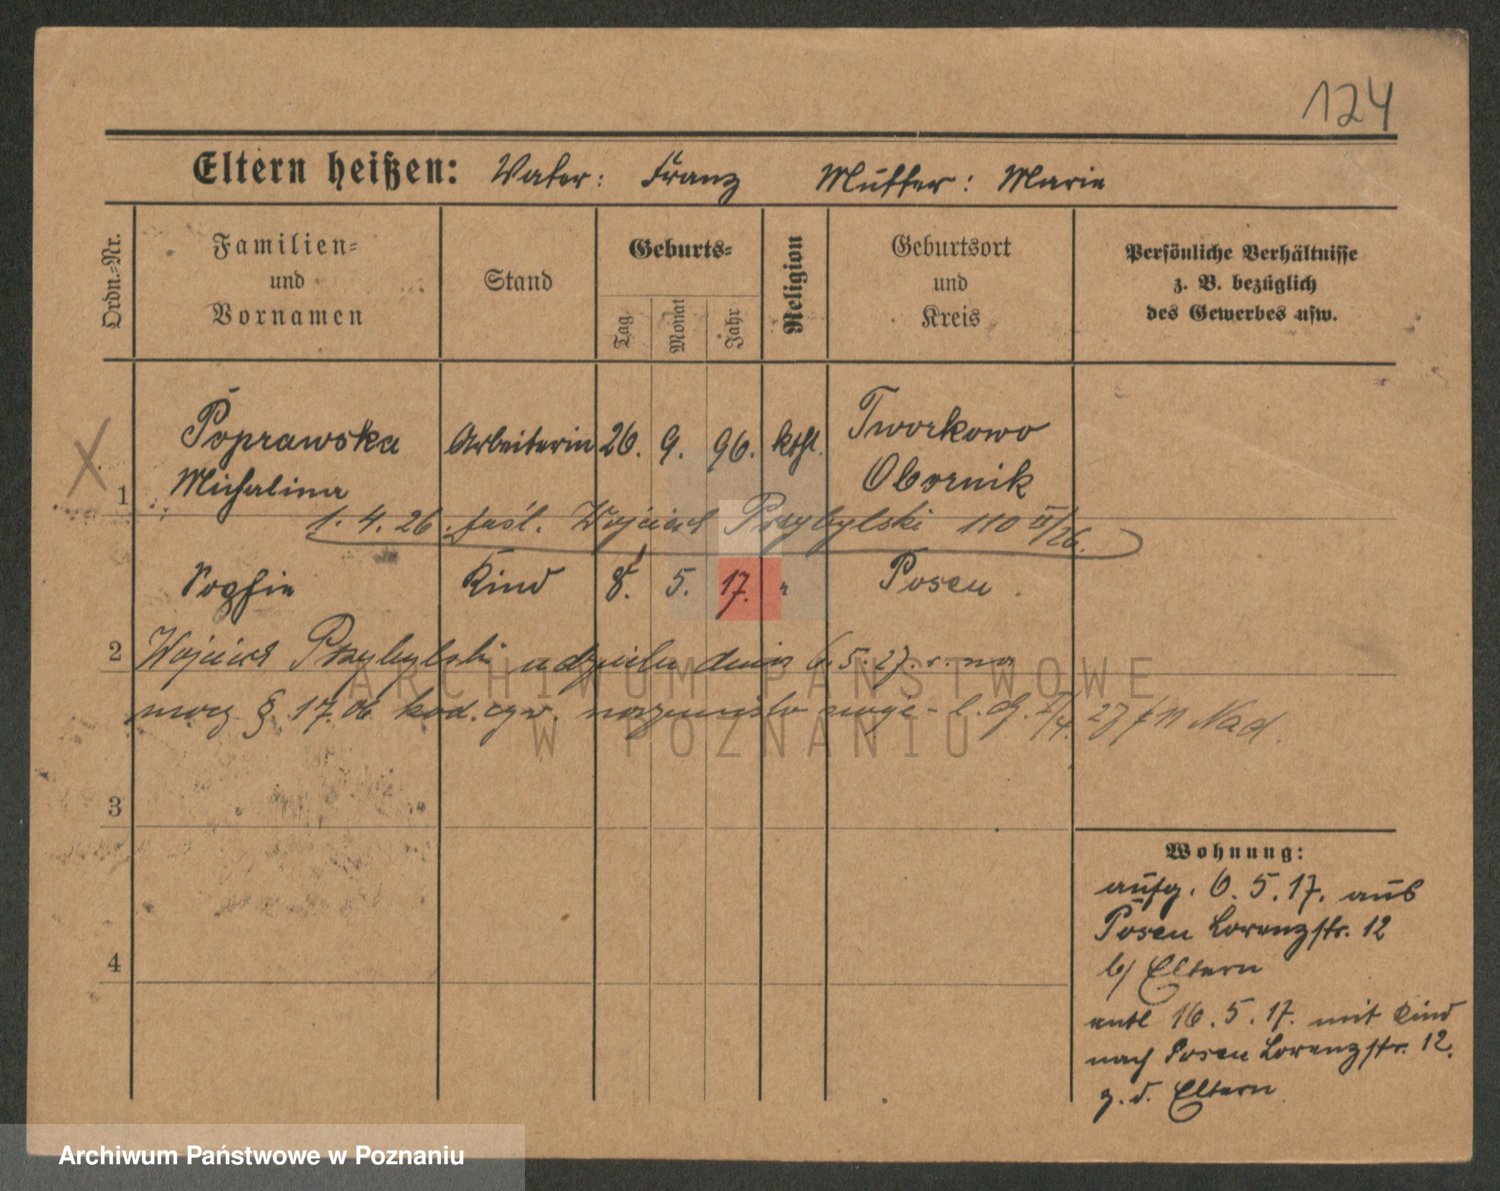 124
Eltern heißen: Vater: Franz Mutter: Marie
Ordn.-Nr.
Familien-
und
Vornamen
Stand
Geburts-
Tag
Monat
Jahr
Religion
Geburtsort
und
Kreis
Persönliche Verhältnisse
z. B. bezüglich
des Gewerbes usw.
1 Poprawska Arbeiterin 26. 9. 96. kth. Tworkowo
Michalina Obornik
1. 4. 26. zaśl. Wojciech Przybylski 110 II/26.
Sophie Kind 8. 5. 17. " Posen.
2 Wojciech Przybylski udzielił dnia 6.5.27. r. na
mocy § 17.06 kod. cyw. nazwisko swoje - l. dz. 27
3
4
Wohnung:
aufg. 6.5.17. aus
Posen Lorenzstr. 12
b/ Eltern
entl 16.5.17. mit Kind
nach Posen Lorenzstr. 12.
z. d. Eltern
ARCHIWUM PAŃSTWOWE
W POZNANIU
Archiwum Państwowe w Poznaniu